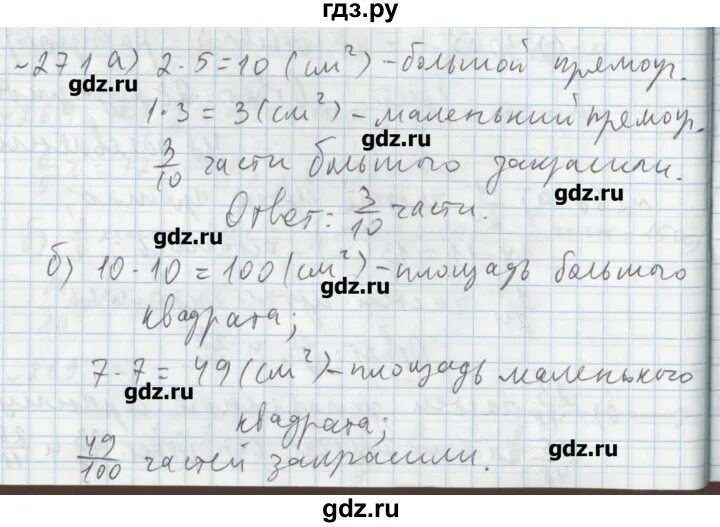 гдз.ру
№271 а) 2·5=10 (см²) – большой прямоуг.
gdz.ru
1·3 = 3 (см²) – маленький прямоуг.
gdz.ru
3/10 части большого закрасили.
gdz.ru
Ответ: 3/10 части.
gdz.ru
б) 10·10 = 100 (см²) – площадь большого
gdz.ru
квадрата;
7·7 = 49 (см²) – площадь маленького
gdz.ru
квадрата;
49/100 частей закрасили.
gdz.ru
gdz.ru